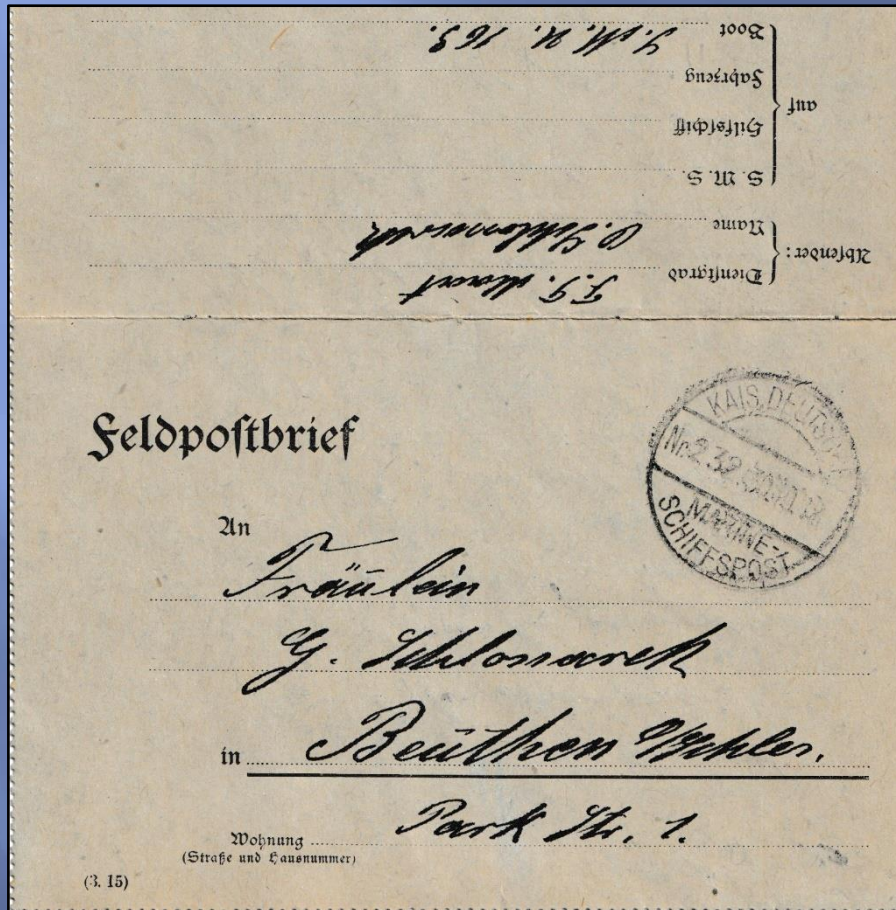 Absender:
Dienstgrad F.T. Maat
Name
auf
S. M. S.
Hilfsschiff
Fahrzeug
Boot S.M.U. 163.
Feldpostbrief
KAIS. DEUTSCHE
Nr. 232
MARINE-
SCHIFFSPOST
An
Fräulein
G. Schlonsarek
in Beuthen O/Schles.
Park Str. 1.
Wohnung
(Straße und Hausnummer)
(3. 15)